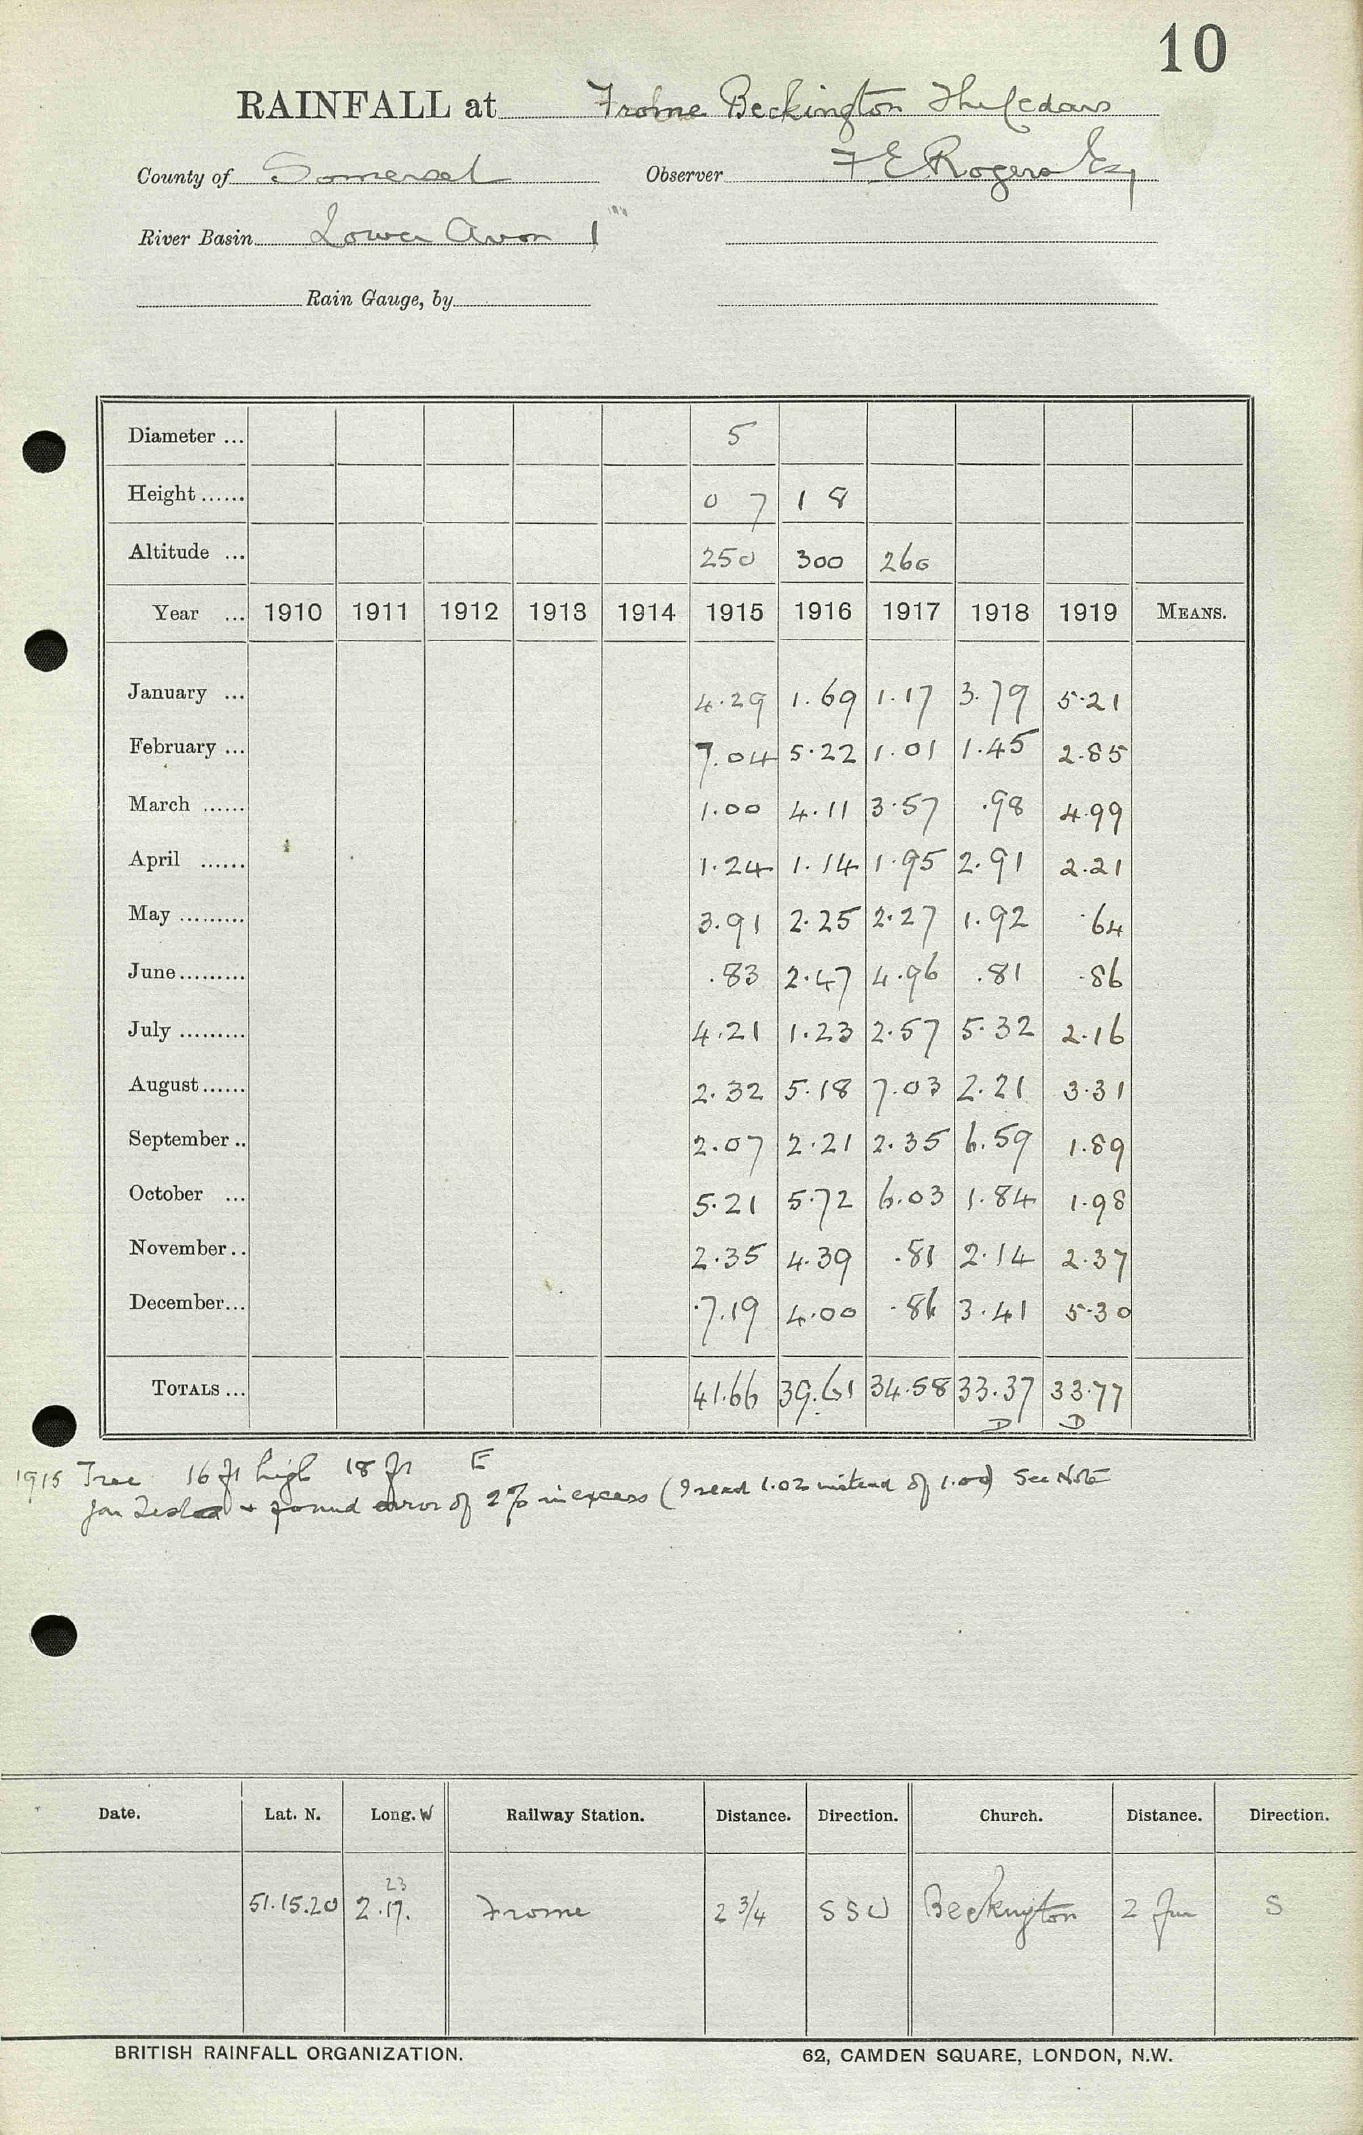 10
RAINFALL at Frome Beckington The Cedars
County of Somerset Observer F E Rogers Esq
River Basin Lower Avon 1
Rain Gauge, by
Diameter ... 5
Height ...... 0 7 1 8
Altitude ... 250 300 260
Year ... 1910 1911 1912 1913 1914 1915 1916 1917 1918 1919 MEANS.
January ... 4.29 1.69 1.17 3.79 5.21
February ... 7.04 5.22 1.01 1.45 2.85
March ...... 1.00 4.11 3.57 .98 4.99
April ...... 1.24 1.14 1.95 2.91 2.21
May ......... 3.91 2.25 2.27 1.92 .64
June ......... .83 2.47 4.96 .81 .86
July ......... 4.21 1.23 2.57 5.32 2.16
August ...... 2.32 5.18 7.03 2.21 3.31
September .. 2.07 2.21 2.35 6.59 1.89
October ... 5.21 5.72 6.03 1.84 1.98
November .. 2.35 4.39 .81 2.14 2.37
December ... 7.19 4.00 .86 3.41 5.30
TOTALS ... 41.66 39.61 34.58 33.37 33.77
D D
1915 Tree 16 ft high 18 ft E
Jan Tested + found error of 2% in excess (I read 1.02 instead of 1.00) See Note
Date. Lat. N. Long. W Railway Station. Distance. Direction. Church. Distance. Direction.
23
51.15.20 2.17. Frome 2 3/4 SSW Beckington 2 Fur S
BRITISH RAINFALL ORGANIZATION. 62, CAMDEN SQUARE, LONDON, N.W.